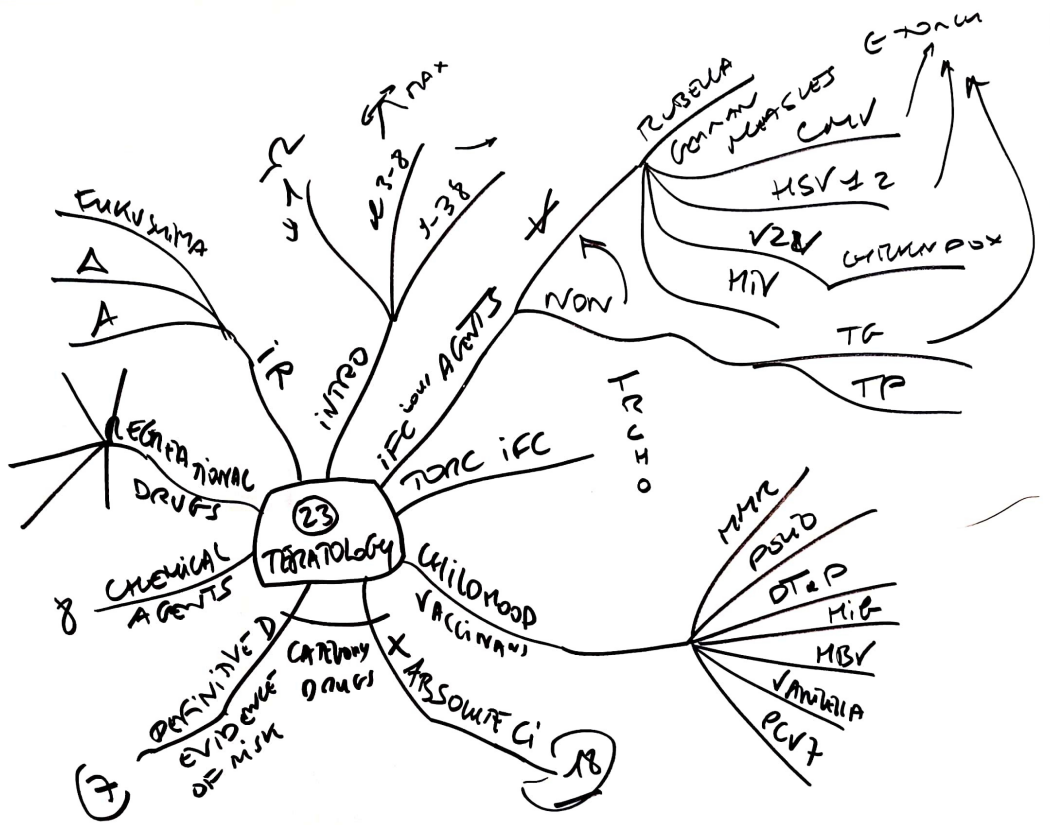 23
TERATOLOGY
INTRO
e 3-8
9-38
MAX
iFC ious AGENTS
RUBELLA
GERMAN MEASLES
CMV
HSV 1 2
VZV
CHICKENPOX
HiV
NON
TG
TP
TORC iFC
T
R
C
H
O
CHILDHOOD
VACCINANS
MMR
POLIO
DTaP
HiB
HBV
VARICELLA
PCV7
CATEGORY
DRUGS
X ABSOLUTE Ci
18
DEFINITIVE D
EVIDENCE
OF RISK
7
CHEMICAL
AGENTS
8
RECREATIONAL
DRUGS
iR
FUKUSHIMA
A